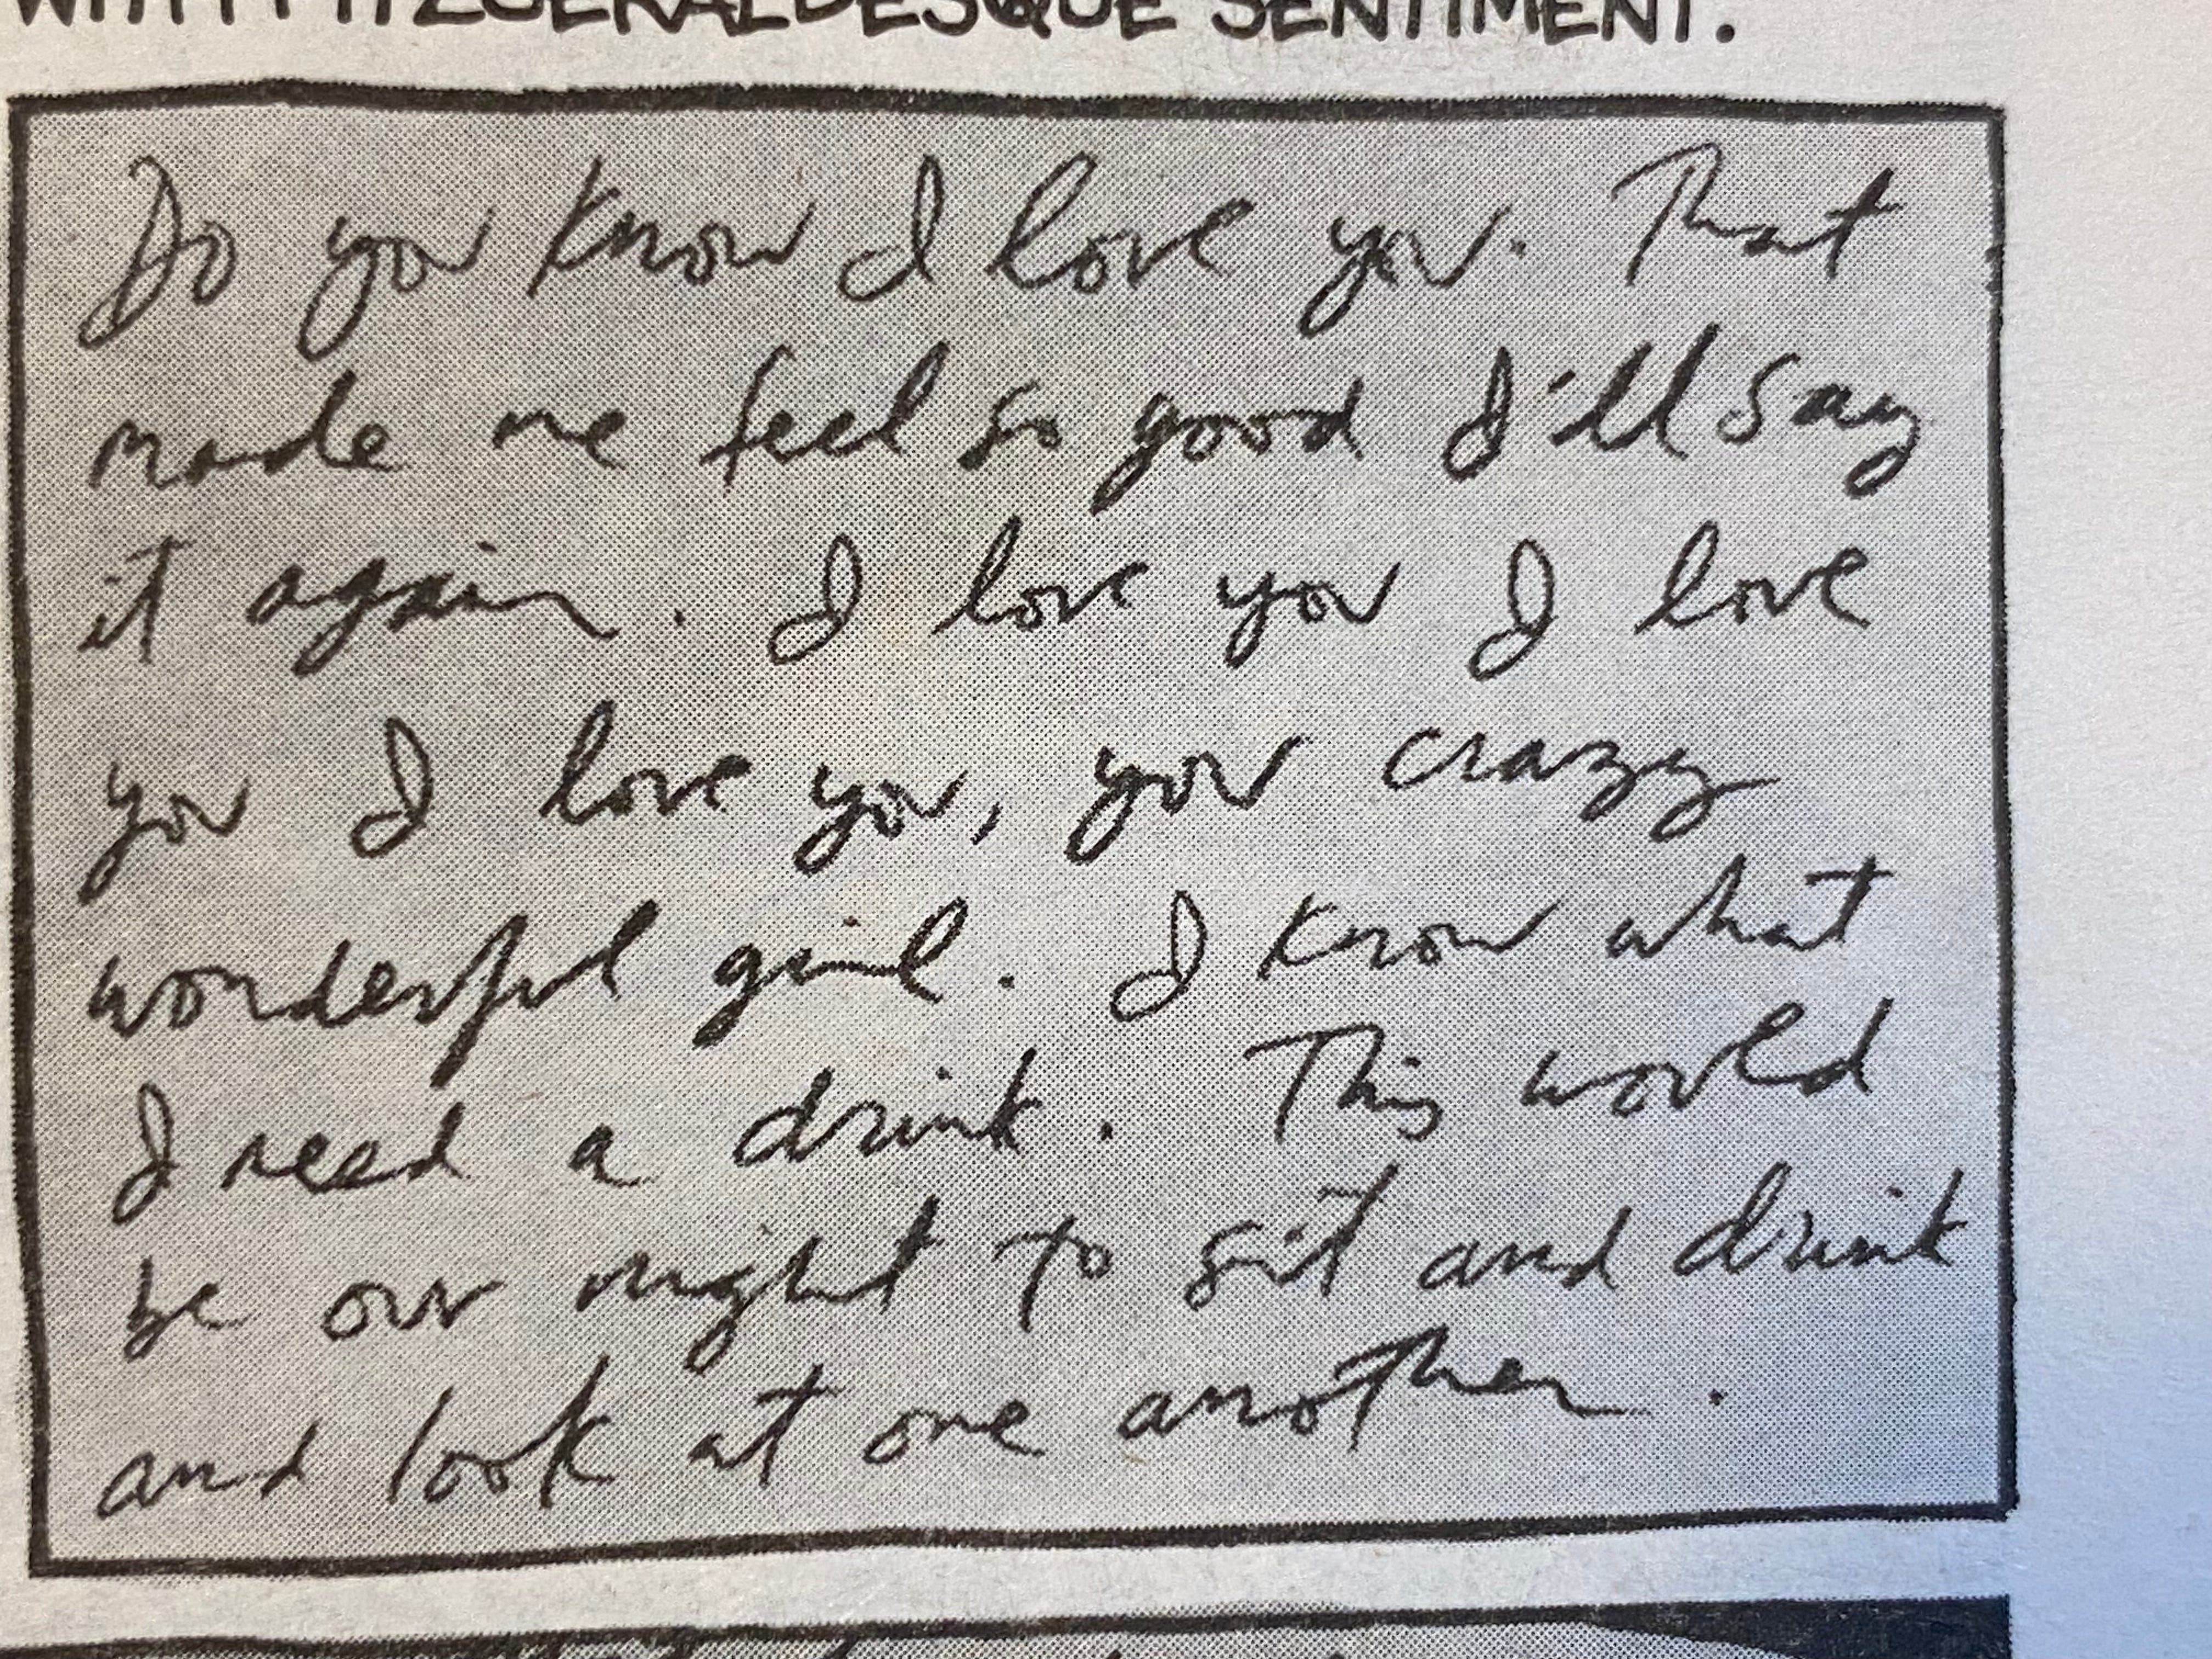 FITZGERALDESQUE SENTIMENT.
Do you know I love you. That
made me feel so good I'll say
it again. I love you I love
you I love you, you crazy
wonderful girl. I know what
I need a drink. This would
be our night to sit and drink
and look at one another.